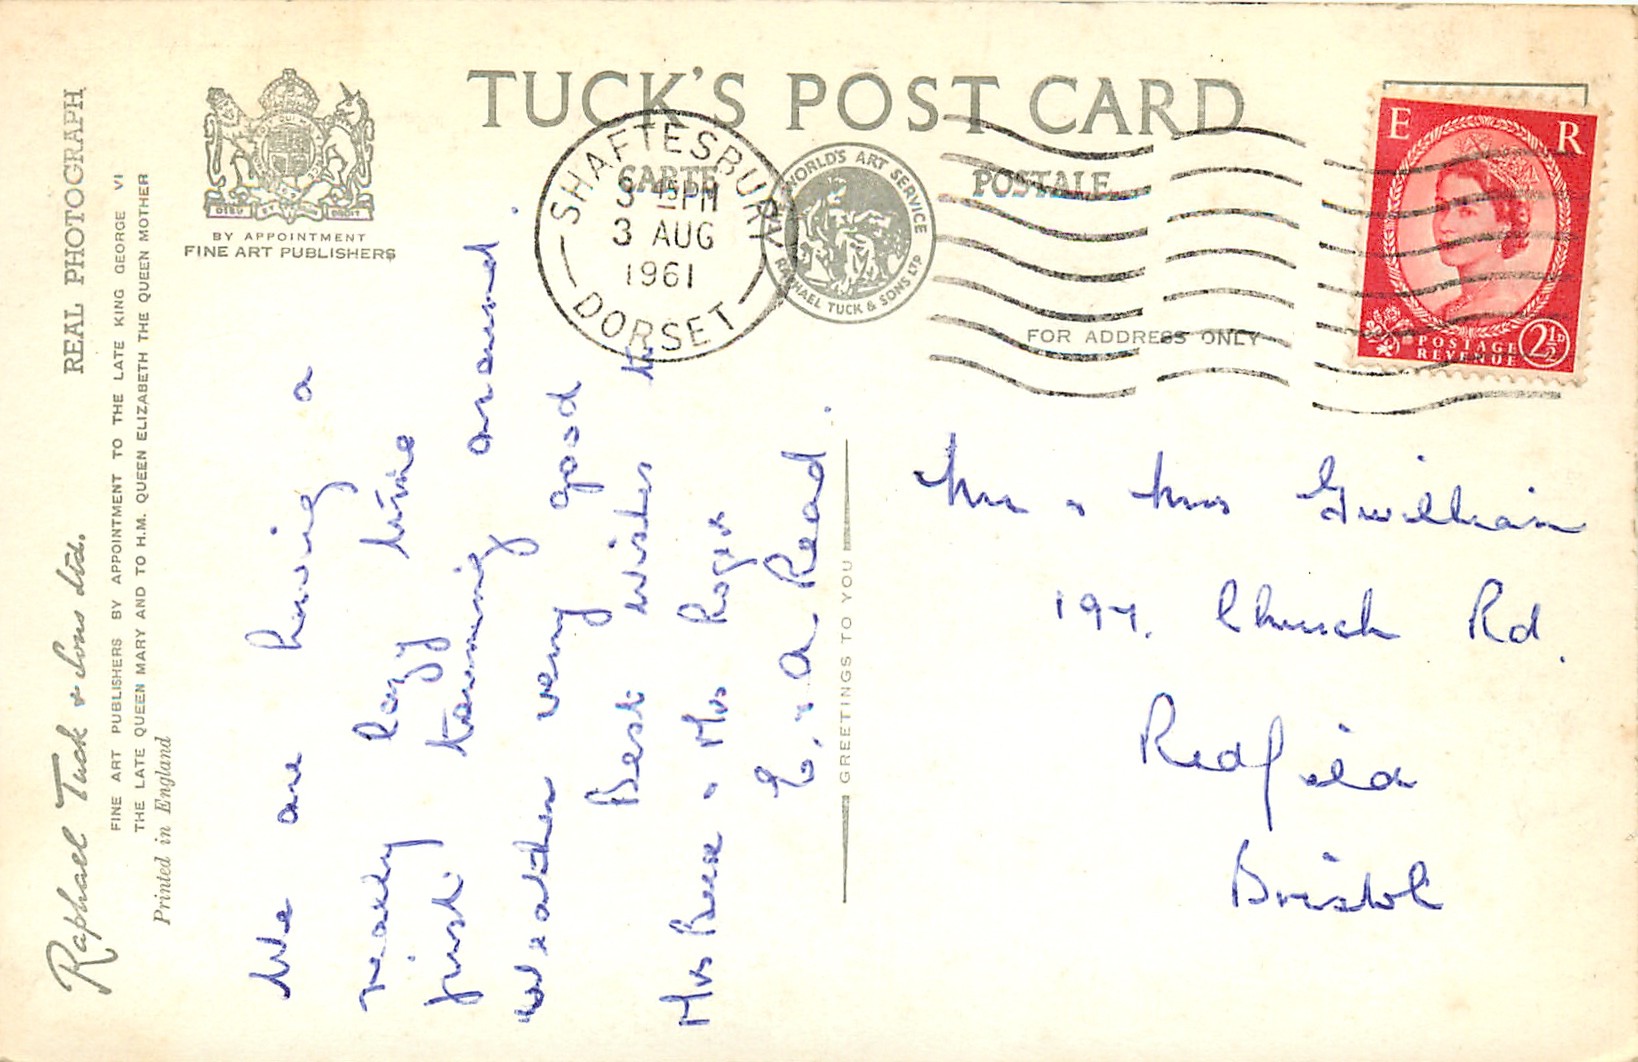 TUCK'S POST CARD
CARTE POSTALE
BY APPOINTMENT
FINE ART PUBLISHERS
DIEU ET MON DROIT
REAL PHOTOGRAPH
Raphael Tuck & Sons Ltd.
FINE ART PUBLISHERS BY APPOINTMENT TO THE LATE KING GEORGE VI
THE LATE QUEEN MARY AND TO H.M. QUEEN ELIZABETH THE QUEEN MOTHER
Printed in England
SHAFTESBURY
15 PM
3 AUG
1961
DORSET
WORLD'S ART SERVICE
RAPHAEL TUCK & SONS LTD
FOR ADDRESS ONLY
E R
POSTAGE
REVENUE
2½D
We are having a
really lazy time
just touring around.
Weather very good
Best wishes to
Mrs & Mrs Roger
E. & A. Read.
GREETINGS TO YOU
Mr & Mrs Gwilliam
197. Church Rd.
Redfield
Bristol